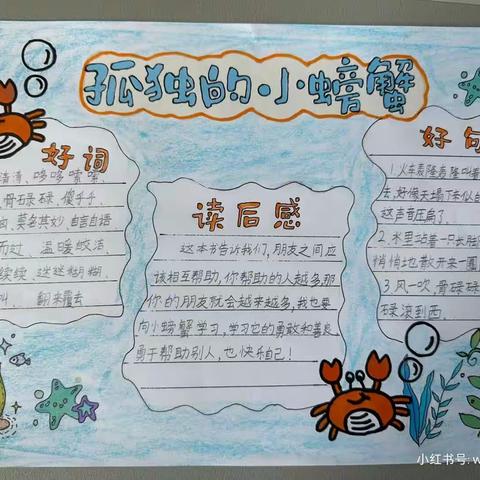 孤独的小螃蟹
好词
清清、哆哆嗦嗦、
骨碌碌、傻乎乎、
莫名其妙、自言自语
而过、温暖皎洁、
续续、迷迷糊糊、
叫、翻来覆去
读后感
这本书告诉我们,朋友之间应
该相互帮助,你帮助的人越多,那
你的朋友就会越来越多,我也要
向小螃蟹学习,学习它的勇敢和善良
勇于帮助别人,也快乐自己!
好句
1.火车轰隆轰隆叫着
去,好像天塌下来似的
这声音压扁了、
2.木里沾着一只长胜
悄悄地散开来一圈
3.风一吹,骨碌碌
碌滚到西、
小红书号:w